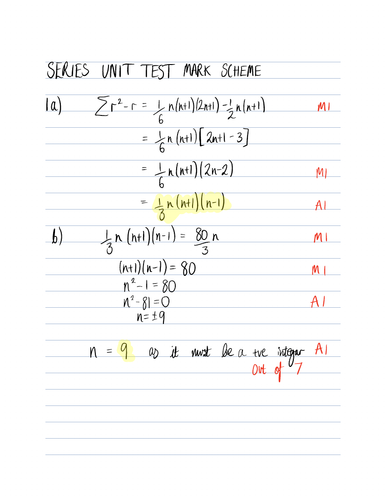 SERIES UNIT TEST MARK SCHEME
1a) ∑r²-r = 1/6 n(n+1)(2n+1) - 1/2 n(n+1) M1
= 1/6 n(n+1)[2n+1-3]
= 1/6 n(n+1)(2n-2) M1
= 1/3 n(n+1)(n-1) A1
b) 1/3 n(n+1)(n-1) = 80/3 n M1
(n+1)(n-1) = 80 M1
n²-1 = 80
n²-81=0 A1
n=±9
n = 9 as it must be a +ve integer A1
Out of 7